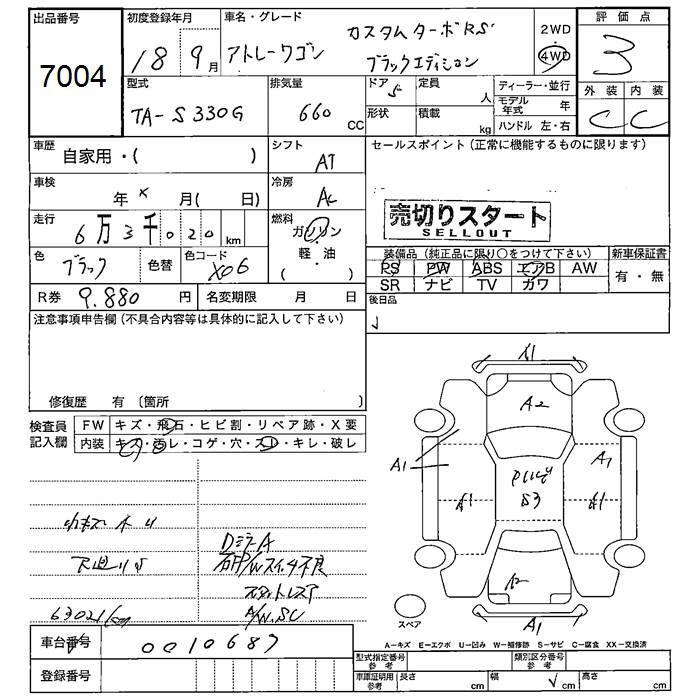 出品番号
7004
初度登録年月
18 9月
車名・グレード
アトレーワゴン
カスタムターボRS
ブラックエディション
2WD
4WD
評価点
3
外装 内装
C C
型式
TA-S330G
排気量
660 CC
ドア 5
定員 人
形状
積載 kg
ディーラー・並行
モデル年式 年
ハンドル 左・右
車歴
自家用・( )
シフト
AT
セールスポイント(正常に機能するものに限ります)
車検
年 × 月( 日)
冷房
AC
売切りスタート
SELLOUT
走行
6万3千020km
燃料
ガソリン
軽・油
( )
色
ブラック
色替
色コード
X06
装備品(純正品に限り○をつけて下さい)
PS PW ABS エアB AW
SR ナビ TV カワ
新車保証書
有・無
R券 9.880円
名変期限 月 日
後日品
注意事項申告欄(不具合内容等は具体的に記入して下さい)
修復歴 有 (箇所 )
検査員記入欄
FW キズ・飛石・ヒビ割・リペア跡・X要
内装 キズ・汚レ・コゲ・穴・スレ・キレ・破レ
DミラーA
63021km
A/W.SC
A1
A2
A1
A1
A1
A1
S3
A2
A1
スペア
A=キズ E=エクボ U=凹み W=補修跡 S=サビ C=腐食 XX=交換済
車台番号
0010687
登録番号
型式指定番号 参考
類別区分番号 参考
車庫証明用 参考
長さ cm
幅 cm
高さ cm